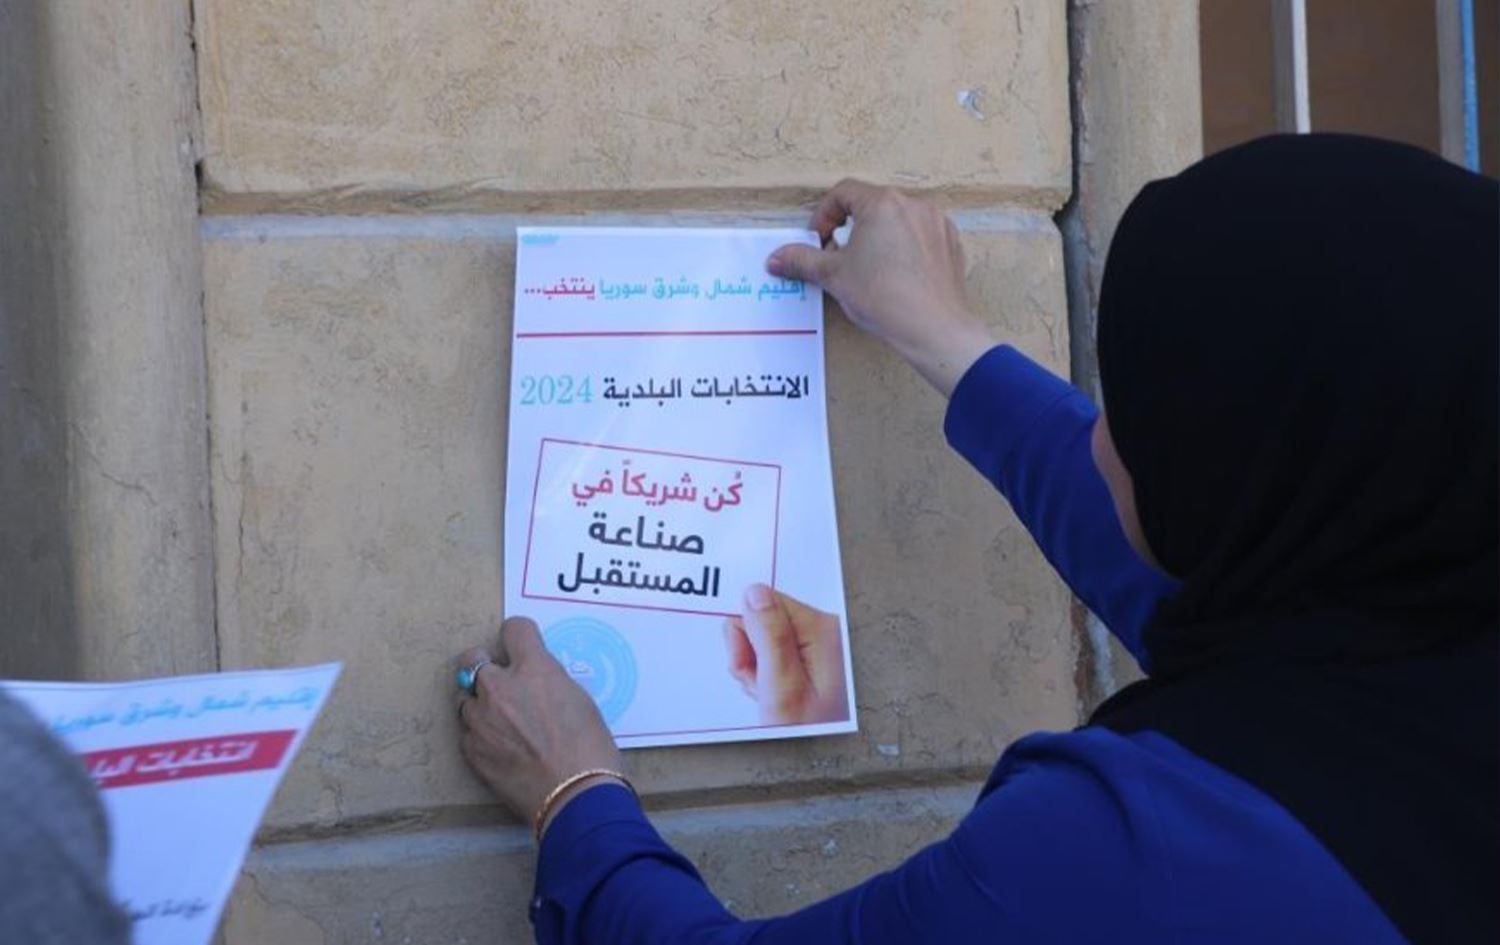 إقليم شمال وشرق سوريا ينتخب...
الانتخابات البلدية 2024
كُن شريكاً في
صناعة
المستقبل
إقليم شمال وشرق سوريا